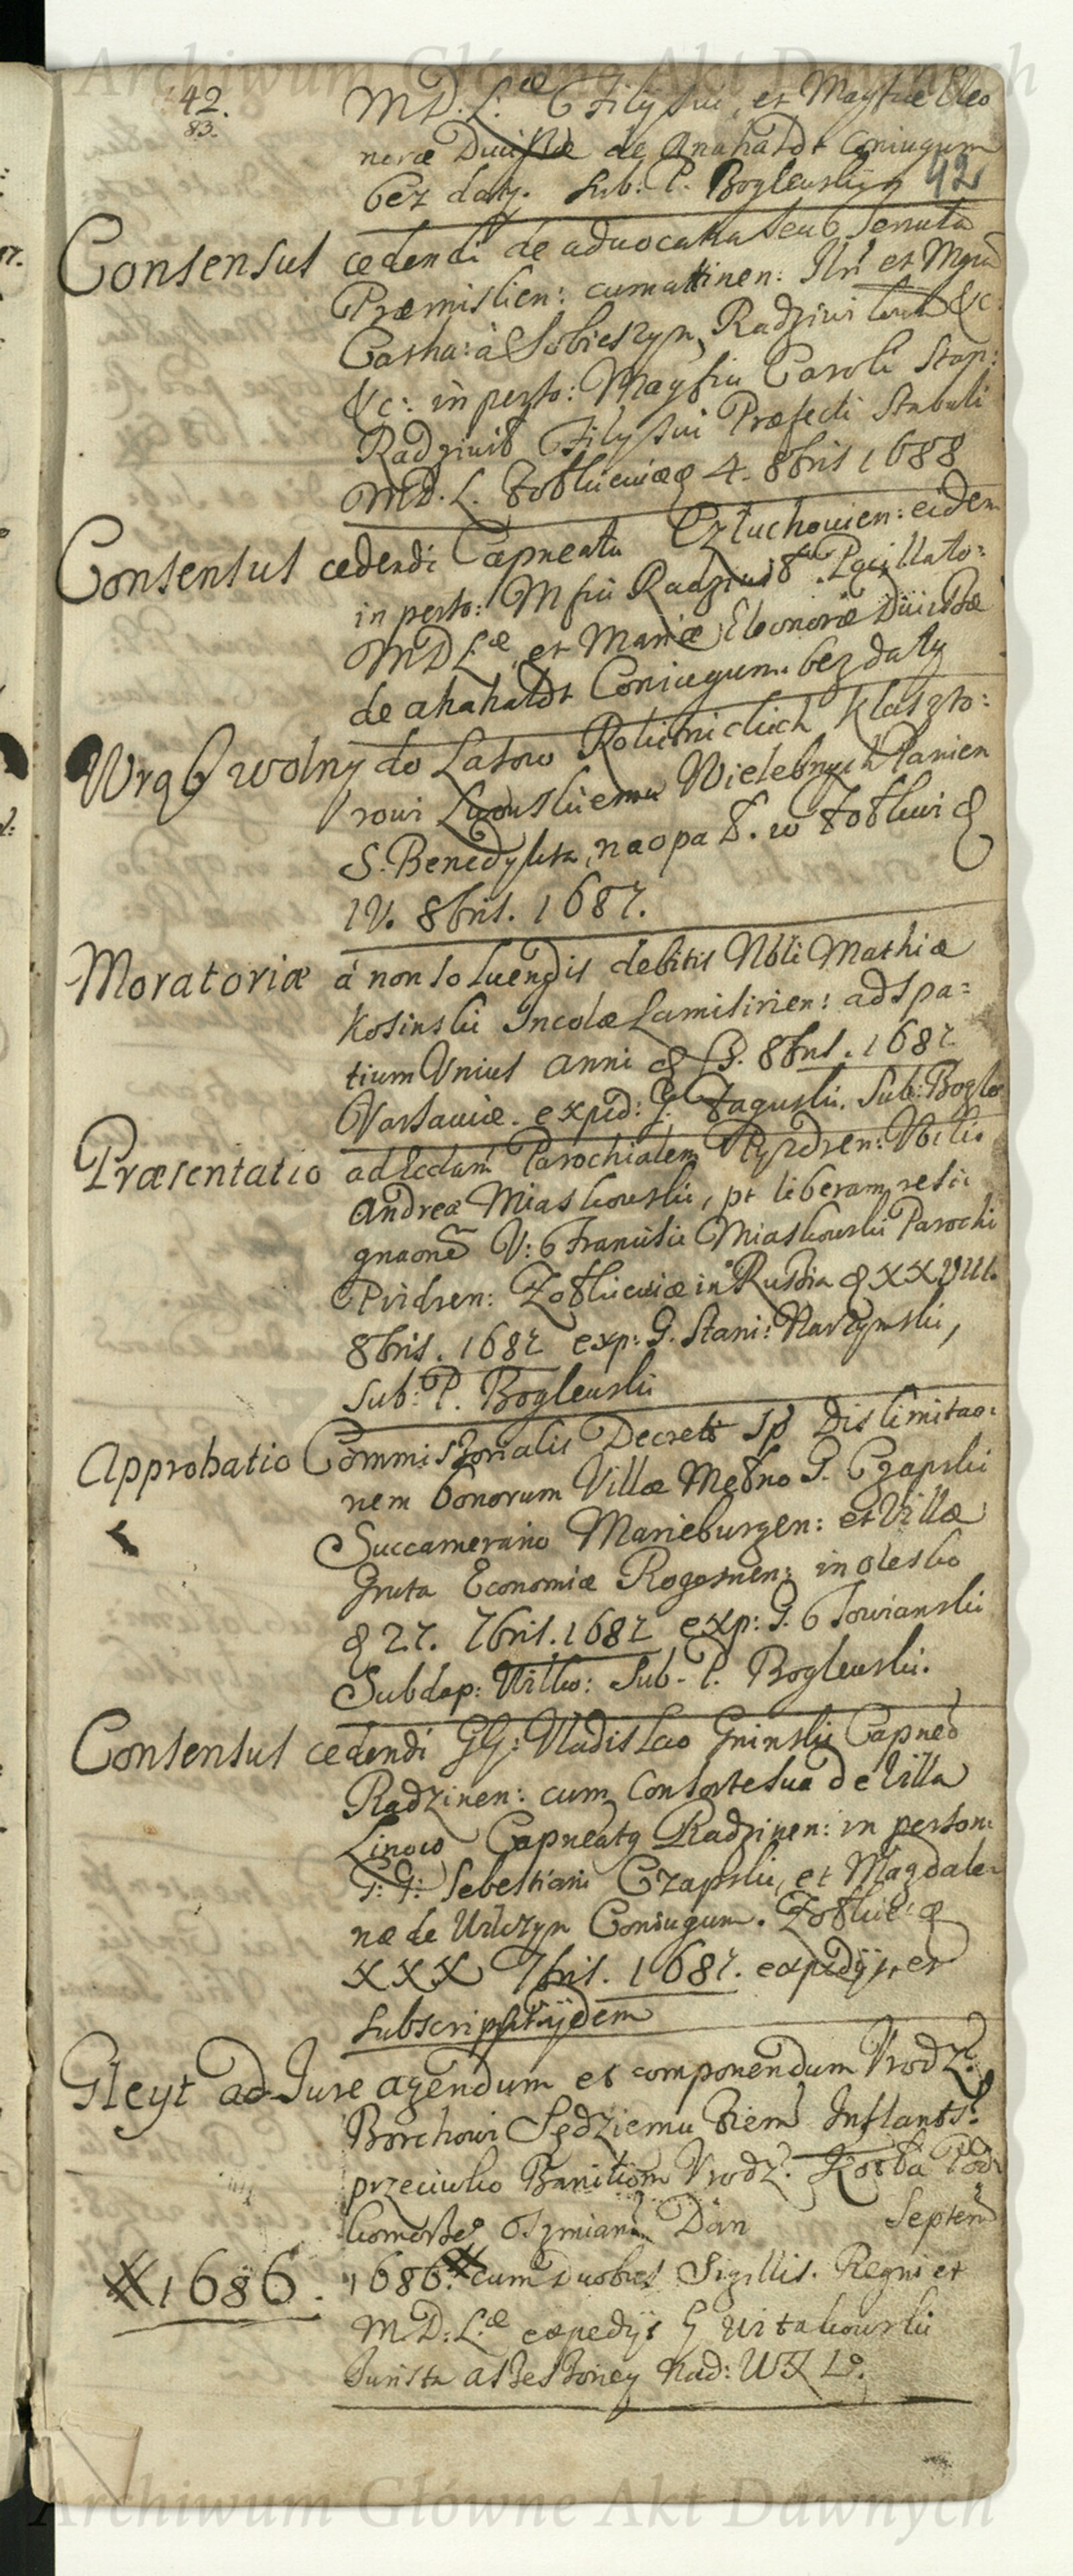 Archiwum Główne Akt Dawnych
42.
83.
MD. L.æ Filij sui, et Magfcæ Eleo
noræ Duissæ de Anahaldt Coniugum
bez daty. Sub: P. Boglewskij
42
Consensus cedendi de advocatia seu Tenuta
Præmislien: cum attinen: Illri et Mgnæ
Catha: à Sobieszyn, Radziwi &c:
&c: in perso: Magfici Caroli Stan:
Radziwił Filij sui Præfecti Stabuli
MD. L. Żołkiewiæ D 4. 8bris 1688
Consensus cedendi Capneatu Człuchovien: eidem
in perso: Mfici Radziwił Pocillato:
MD L.æ et Mariæ Eleonoræ Duissæ
de Ahahaldt Coniugum. bez daty
Wrąb wolny do Lasow Rohtnickich Klaszto:
rowi Lwowskiemu Wielebnych Panien
S. Benedykta, na opał. w Żołkwi D
IV. 8bris. 1687.
Moratoriæ à non soluendis debitis Nbli Mathiæ
Kosinski Incolæ ad spa=
tium Vnius anni D 8bris. 1687
Varsaviæ. exped: G. Sub: Bogle
Præsentatio ad Eccłam Parochialem Pyzdren: Nbilis
Andreæ Miaskowski, pt liberam resi:
gnaonem V: Francisci Miaskowski Parochi
Pizdren: Żołkiewiæ in Russia D XXVIII.
8bris. 1687 exp: G. Stani: Narzymski,
Sub: P. Boglewski
Approbatio Commissorialis Decreti Sp Dislimitao:
nem bonorum Villæ Mełno G. Czapski
Succamerario Marieburgen: et Villæ
Gruta Economiæ Rogosnen: in Olesko
D 27. 7bris. 1687 exp: G. Towianski
Subdap: Wilko: Sub. P. Boglewski.
Consensus cedendi GG: Vladislao Gninski Capneo
Radzinen: cum Consorte sua de Villa
Linowo Capneaty Radzinen: in person:
G: G: Sebestiani Czapski, et Magdale:
næ de Wilczyn Coniugum. Żołkie: D
XXX 7bris. 1687. expedijt et
subscripsit ijdem
Gleyt ad Jure agendum et componendum Vrodz:
Borchowi Sędziemu Ziem Inflants:
przeciwko Banitiom Vrodz. Kosła Pod
komorzeo Oszmians Dan Septem
# 1686. 1686.# cum Duobus Sigillis. Regni et
M. D: L.æ expedijt G Witakowski
Jurista assessoriey Nad: WX Lo.
Archiwum Główne Akt Dawnych